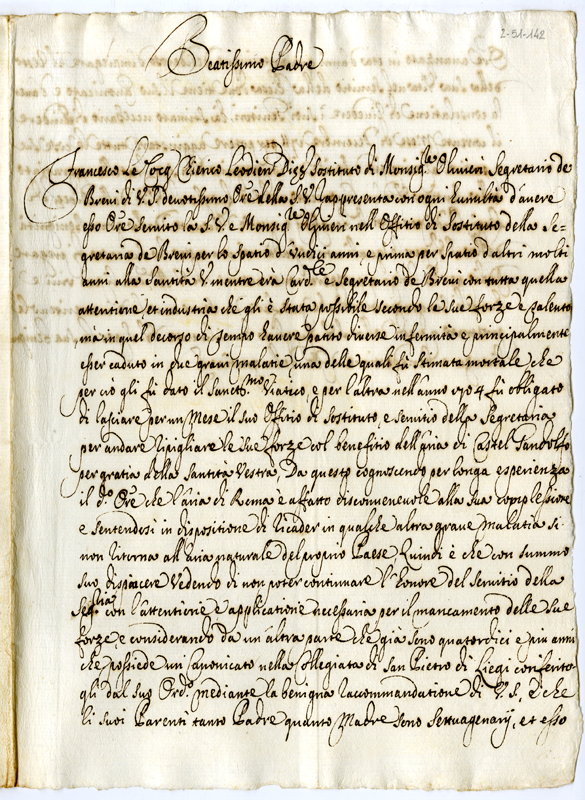 2-51-142
Beatissimo Padre
Francesco Le Cocq Chierico Leodien Dizs Sostituto di Monsig.re Olivieri Segretario de
Brevi di V.S. devotissimo Ore della S.V. rappresenta con ogni humiltà d'avere
esso Ore servito la S.V. e Monsig.re Olivieri nell'Offitio di Sostituto della Se=
gretaria de Brevi per lo spatio d'undici anni, e prima per spatio d'altri molti
anni alla Santità V. mentre erà Card.le e Segretario de Brevi con tutta quella
attentione, et industria che gli è stata possibile secondo le sue forze e talento
mà in quel decorso di tempo havere patito diverse infermità e principalmente
esser caduto in due gravi malatie, una delle quali fù stimata mortale, che
per ciò gli fù dato il Sanct.mo Viatico, e per l'altra nell'anno 1704 fù obligato
di lasciare per un Mese il suo Offitio di Sostituto, e servitio della Segretaria
per andare ripigliare le sue forze col benefitio dell'aria di Castel Gandolfo
per gratia della Santità Vestra, Da questo cognoscendo per longa esperienza
il d.o Ore che l'aria di Roma è affatto disconvenevole alla sua complessione
e sentendosi in dispositione di ricader in qualche altra grave malatia si
non ritorna all'aria naturale del proprio Paese, Quindi è che con summo
suo dispiacere vedendo di non poter continuare l'honore del servitio della
Seg.ria con l'attentione e applicatione necessaria per il mancamento delle sue
forze, e considerando da un'altra parte che già sono quatordici e più anni
che possiede un Canonicato nella Collegiata di San Pietro di Liegi conferito
gli dal suo Ord.o mediante la benigna raccommandatione di V.S., e che
li suoi Parenti tanto Padre quanto Madre sono Settuagenarij, et esso